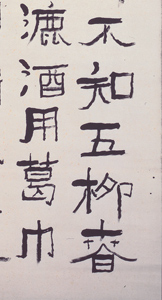 不知五柳春
漉酒用葛巾